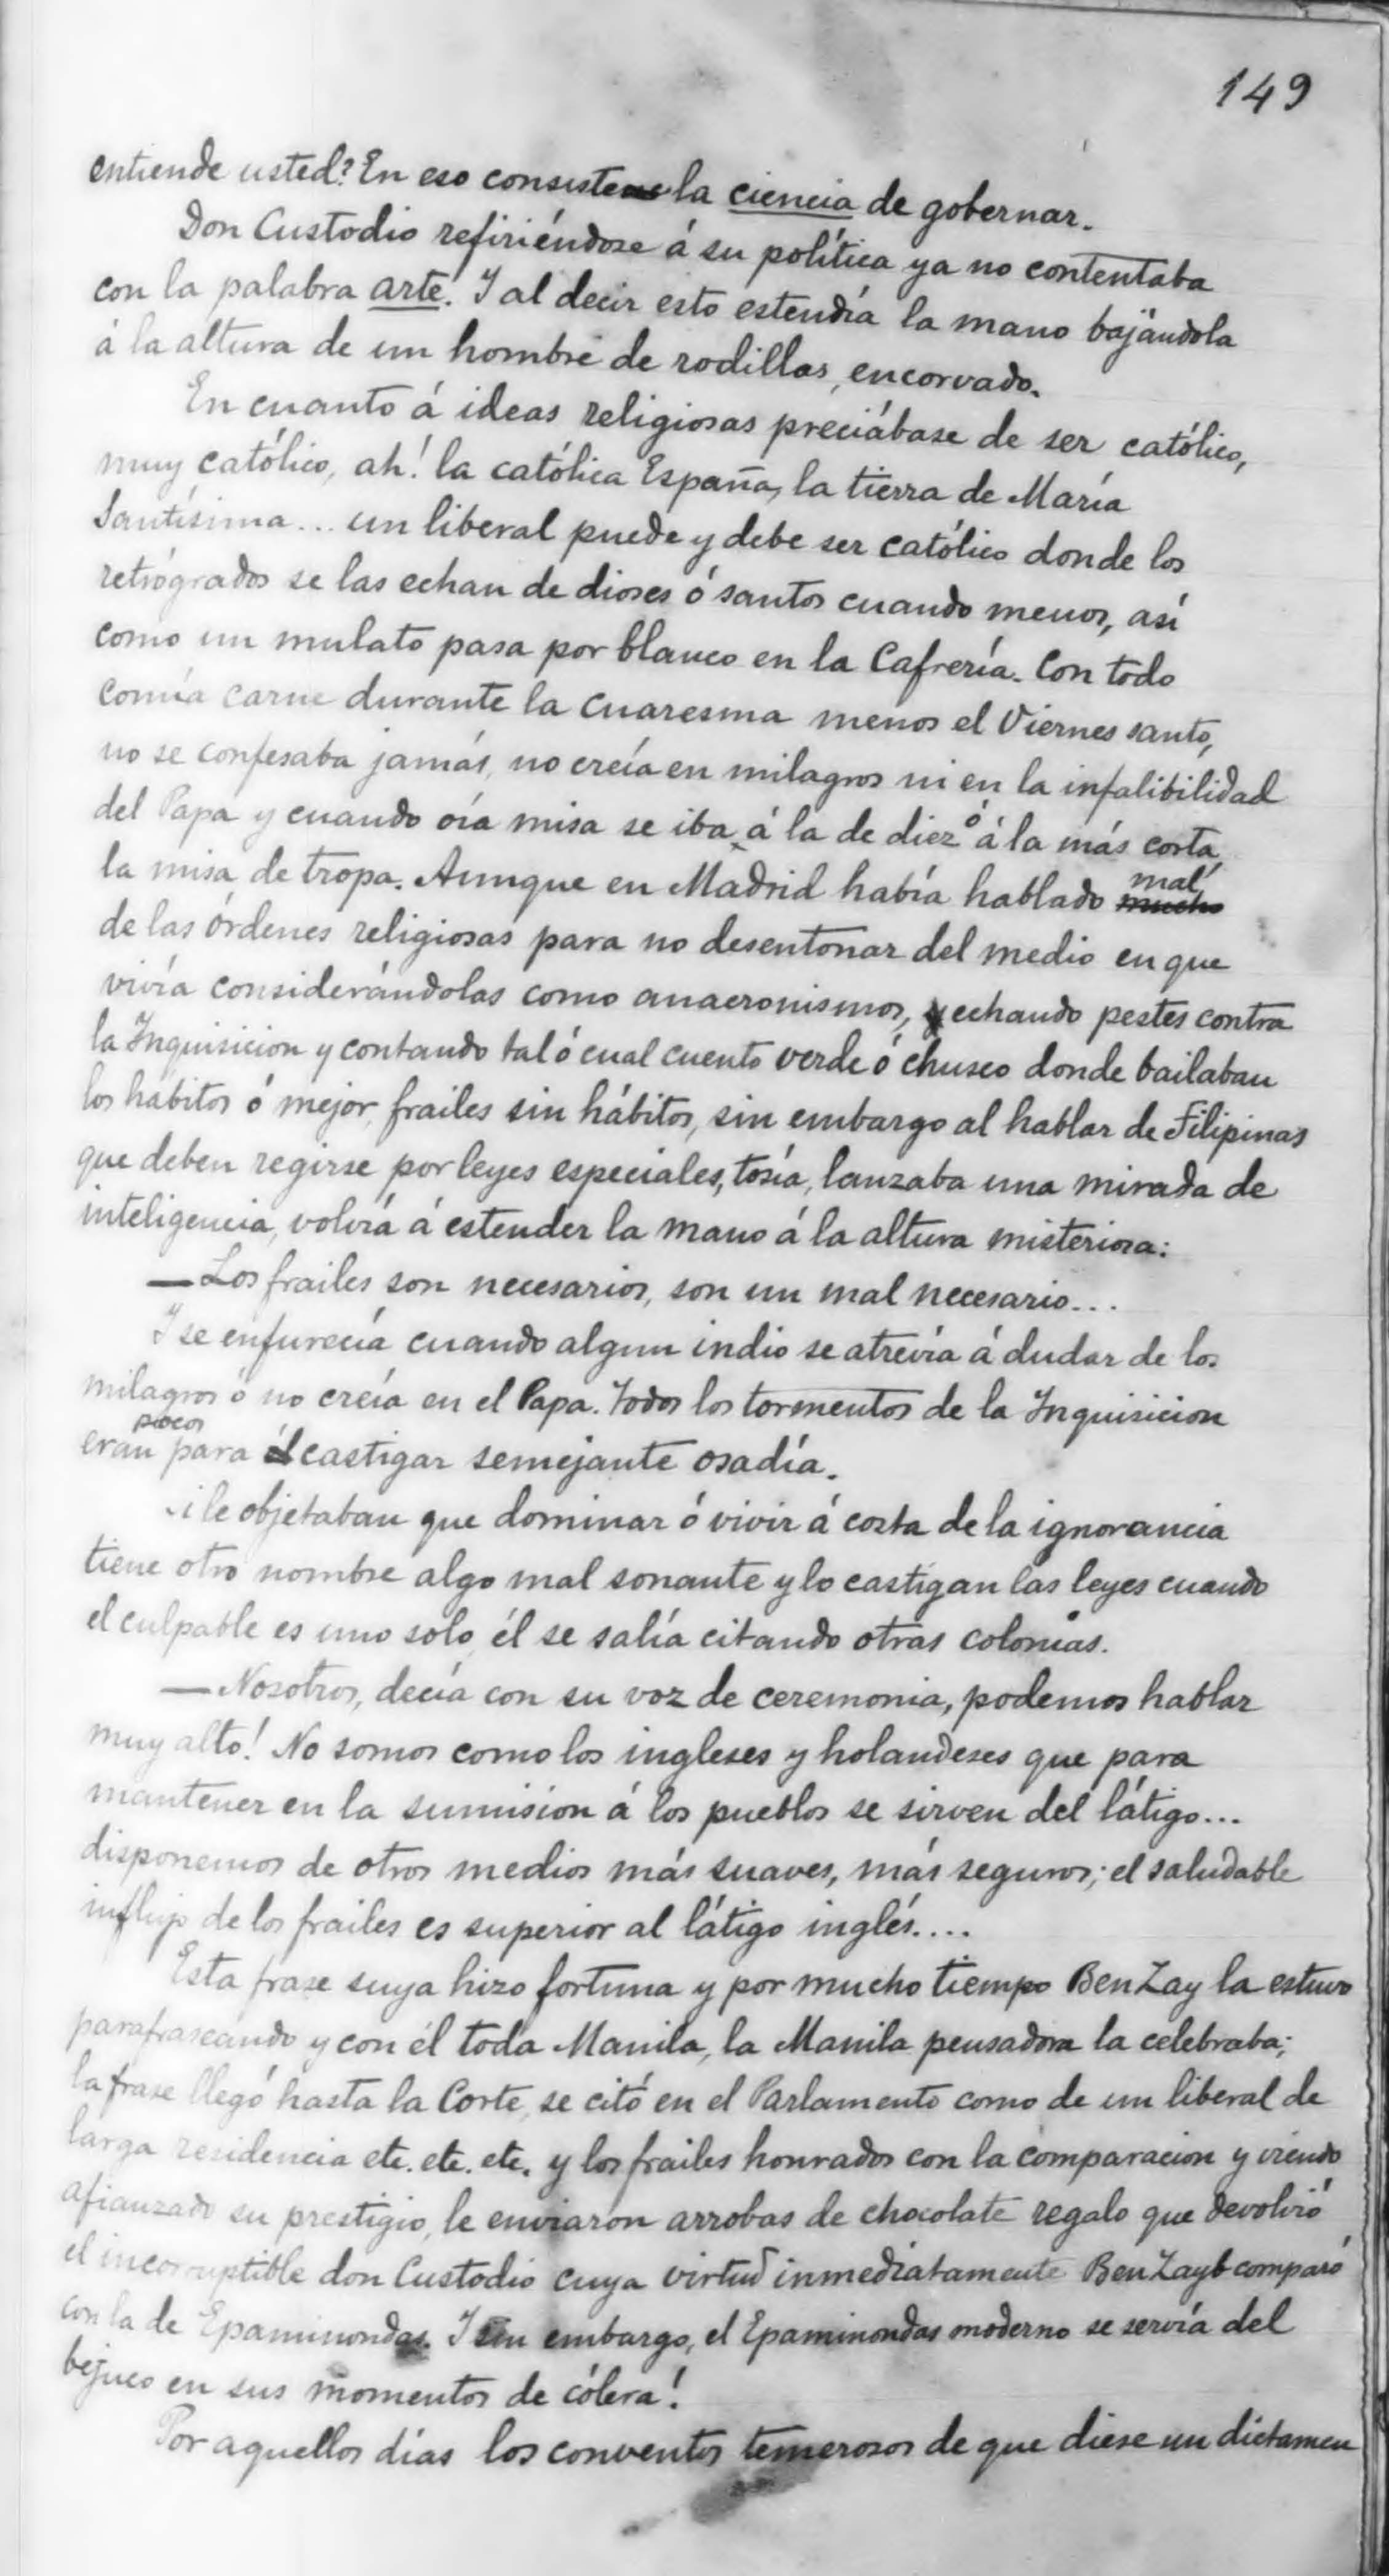 149
entiende usted? En eso consiste la ciencia de gobernar.
Don Custodio refiriéndose á su política ya no contentaba
con la palabra arte. Y al decir esto estendía la mano bajándola
á la altura de un hombre de rodillas, encorvado.
En cuanto á ideas religiosas preciábase de ser católico,
muy católico, ah! la católica España, la tierra de María
Santísima... un liberal puede y debe ser católico donde los
retrógrados se las echan de dioses ó santos cuando menos, así
como un mulato pasa por blanco en la Cafrería. Con todo
comía carne durante la cuaresma menos el Viernes santo,
no se confesaba jamás, no creía en milagros ni en la infalibilidad
del Papa y cuando oía misa se iba á la de diez ó á la más corta,
la misa de tropa. Aunque en Madrid había hablado mucho mal
de las órdenes religiosas para no desentonar del medio en que
vivía considerándolas como anacronismos, y echando pestes contra
la Inquisicion y contando tal ó cual cuento verde ó chusco donde bailaban
los hábitos ó mejor, frailes sin hábitos, sin embargo al hablar de Filipinas
que deben regirse por leyes especiales, tosía, lanzaba una mirada de
inteligencia, volvía á estender la mano á la altura misteriosa:
— Los frailes son necesarios, son un mal necesario...
Y se enfurecía cuando algun indio se atrevía á dudar de los
milagros ó no creía en el Papa. Todos los tormentos de la Inquisicion
eran pocos para castigar semejante osadía.
Si le objetaban que dominar ó vivir á costa de la ignorancia
tiene otro nombre algo mal sonante y lo castigan las leyes cuando
el culpable es uno solo, él se salía citando otras colonias.
— Nosotros, decía con su voz de ceremonia, podemos hablar
muy alto! No somos como los ingleses y holandeses que para
mantener en la sumisión á los pueblos se sirven del látigo...
disponemos de otros medios más suaves, más seguros; el saludable
influjo de los frailes es superior al látigo inglés....
Esta frase suya hizo fortuna y por mucho tiempo Ben Zay la estuvo
parafraseando y con él toda Manila, la Manila pensadora la celebraba;
la frase llegó hasta la Corte, se citó en el Parlamento como de un liberal de
larga residencia etc. etc. etc. y los frailes honrados con la comparacion y viendo
afianzado su prestigio, le enviaron arrobas de chocolate regalo que devolvió
el incorruptible don Custodio cuya virtud inmediatamente Ben Zayb comparó
con la de Epaminondas. Y sin embargo, el Epaminondas moderno se servía del
bejuco en sus momentos de cólera!
Por aquellos días los conventos temerosos de que diese un dictamen